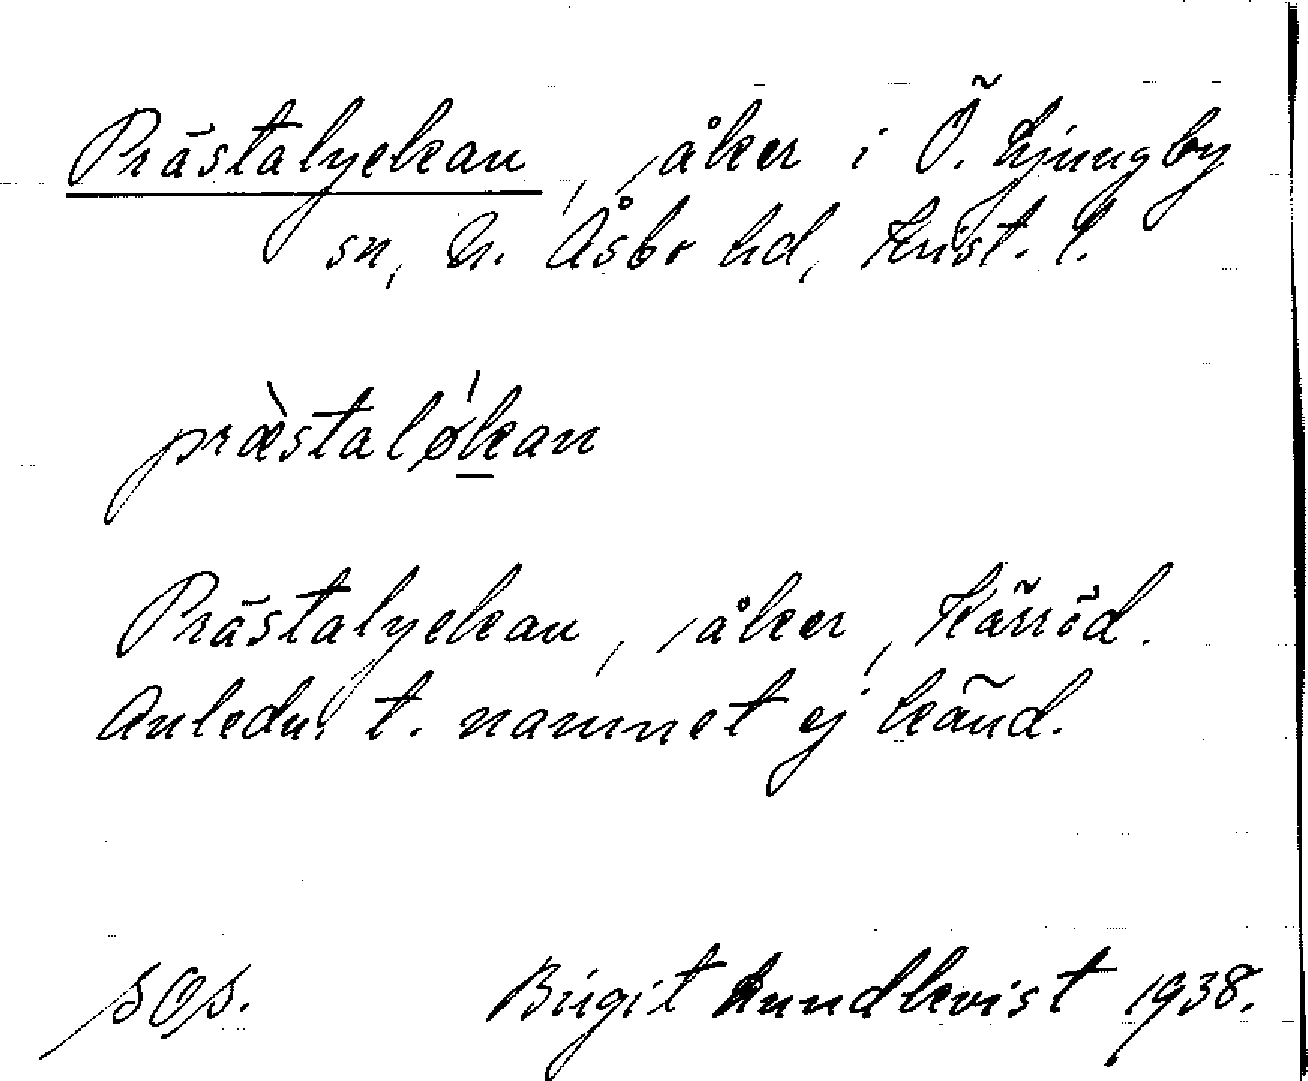 Prästalyckan, åker i Ö. Ljungby
sn, N. Åsbo hd, Krist. l.
præ̀stalǿkan
Prästalyckan, åker, Kärröd.
Anledn. t. namnet ej känd.
sOs. Birgit Lundkvist 1938.